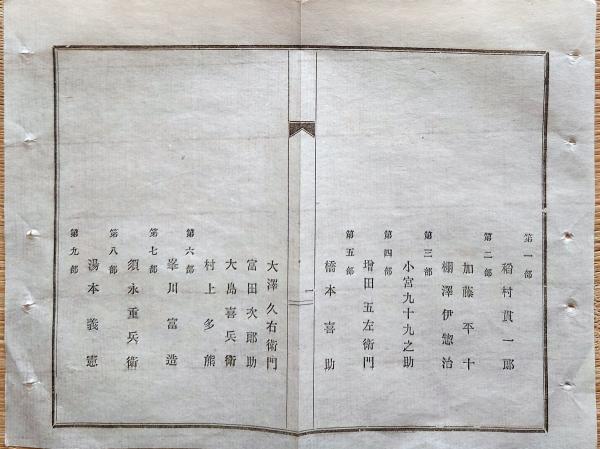 第一部
稻村貫一郎
第二部
加藤平十
棚澤伊惣治
第三部
小宮九十九之助
第四部
增田五左衛門
第五部
橋本喜助
一
大澤久右衛門
富田次郎助
大島喜兵衛
村上多熊
第六部
峯川富造
第七部
須永重兵衛
第八部
湯本義憲
第九部